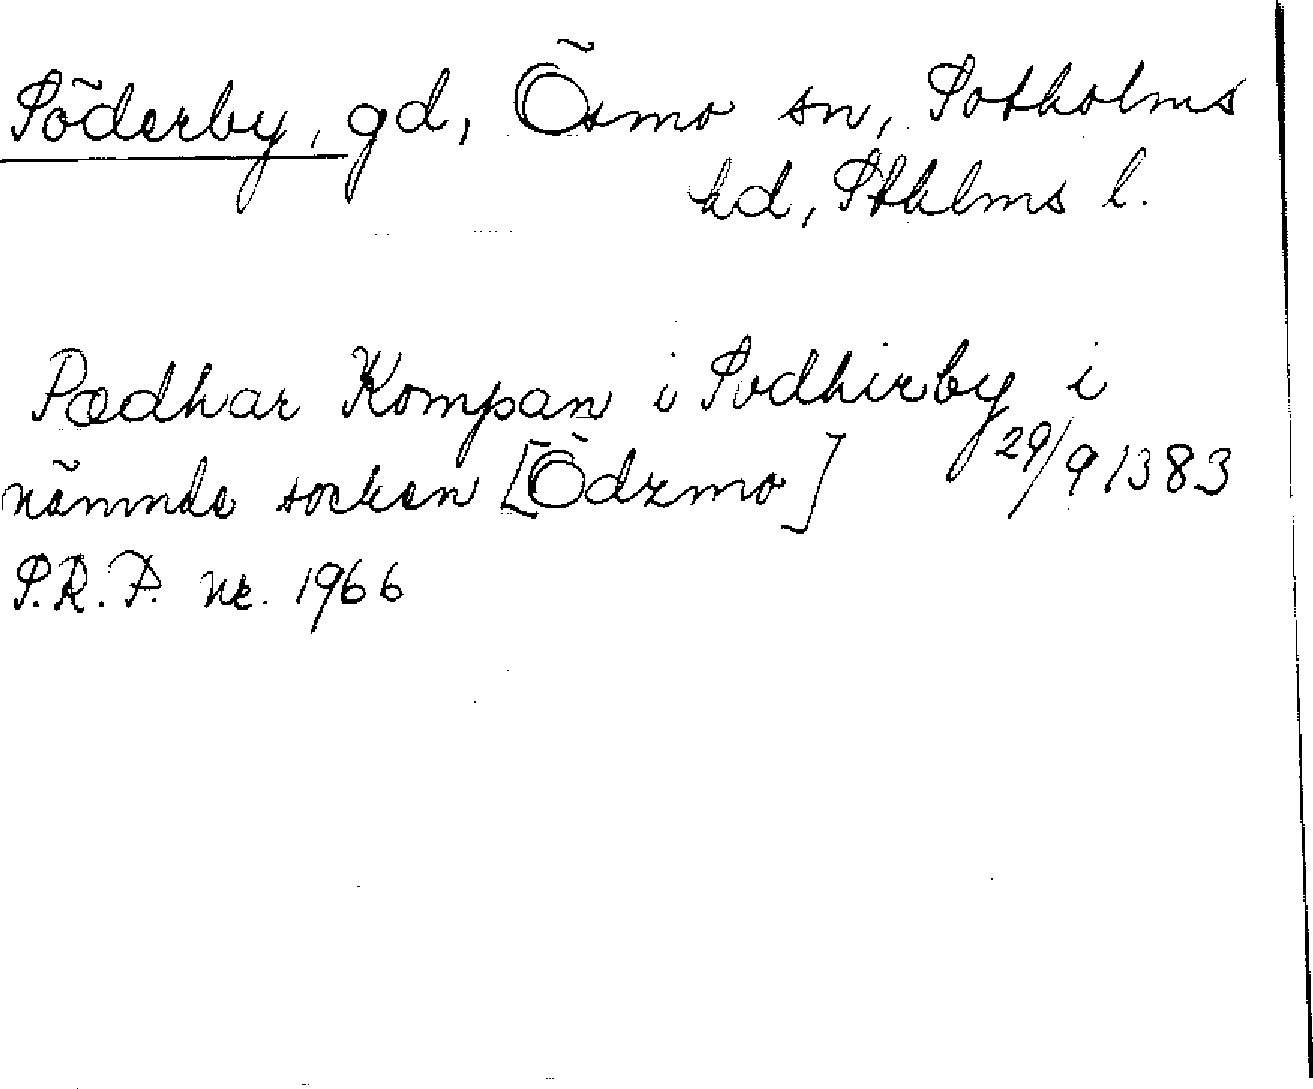 Söderby, gd, Ösmo sn, Sotholms
hd, Sthlms l.
Pædhar Kompan i Sudhirby i
nämnde socken [Ödzmo] 29/9 1383
S.R.P. nr. 1966